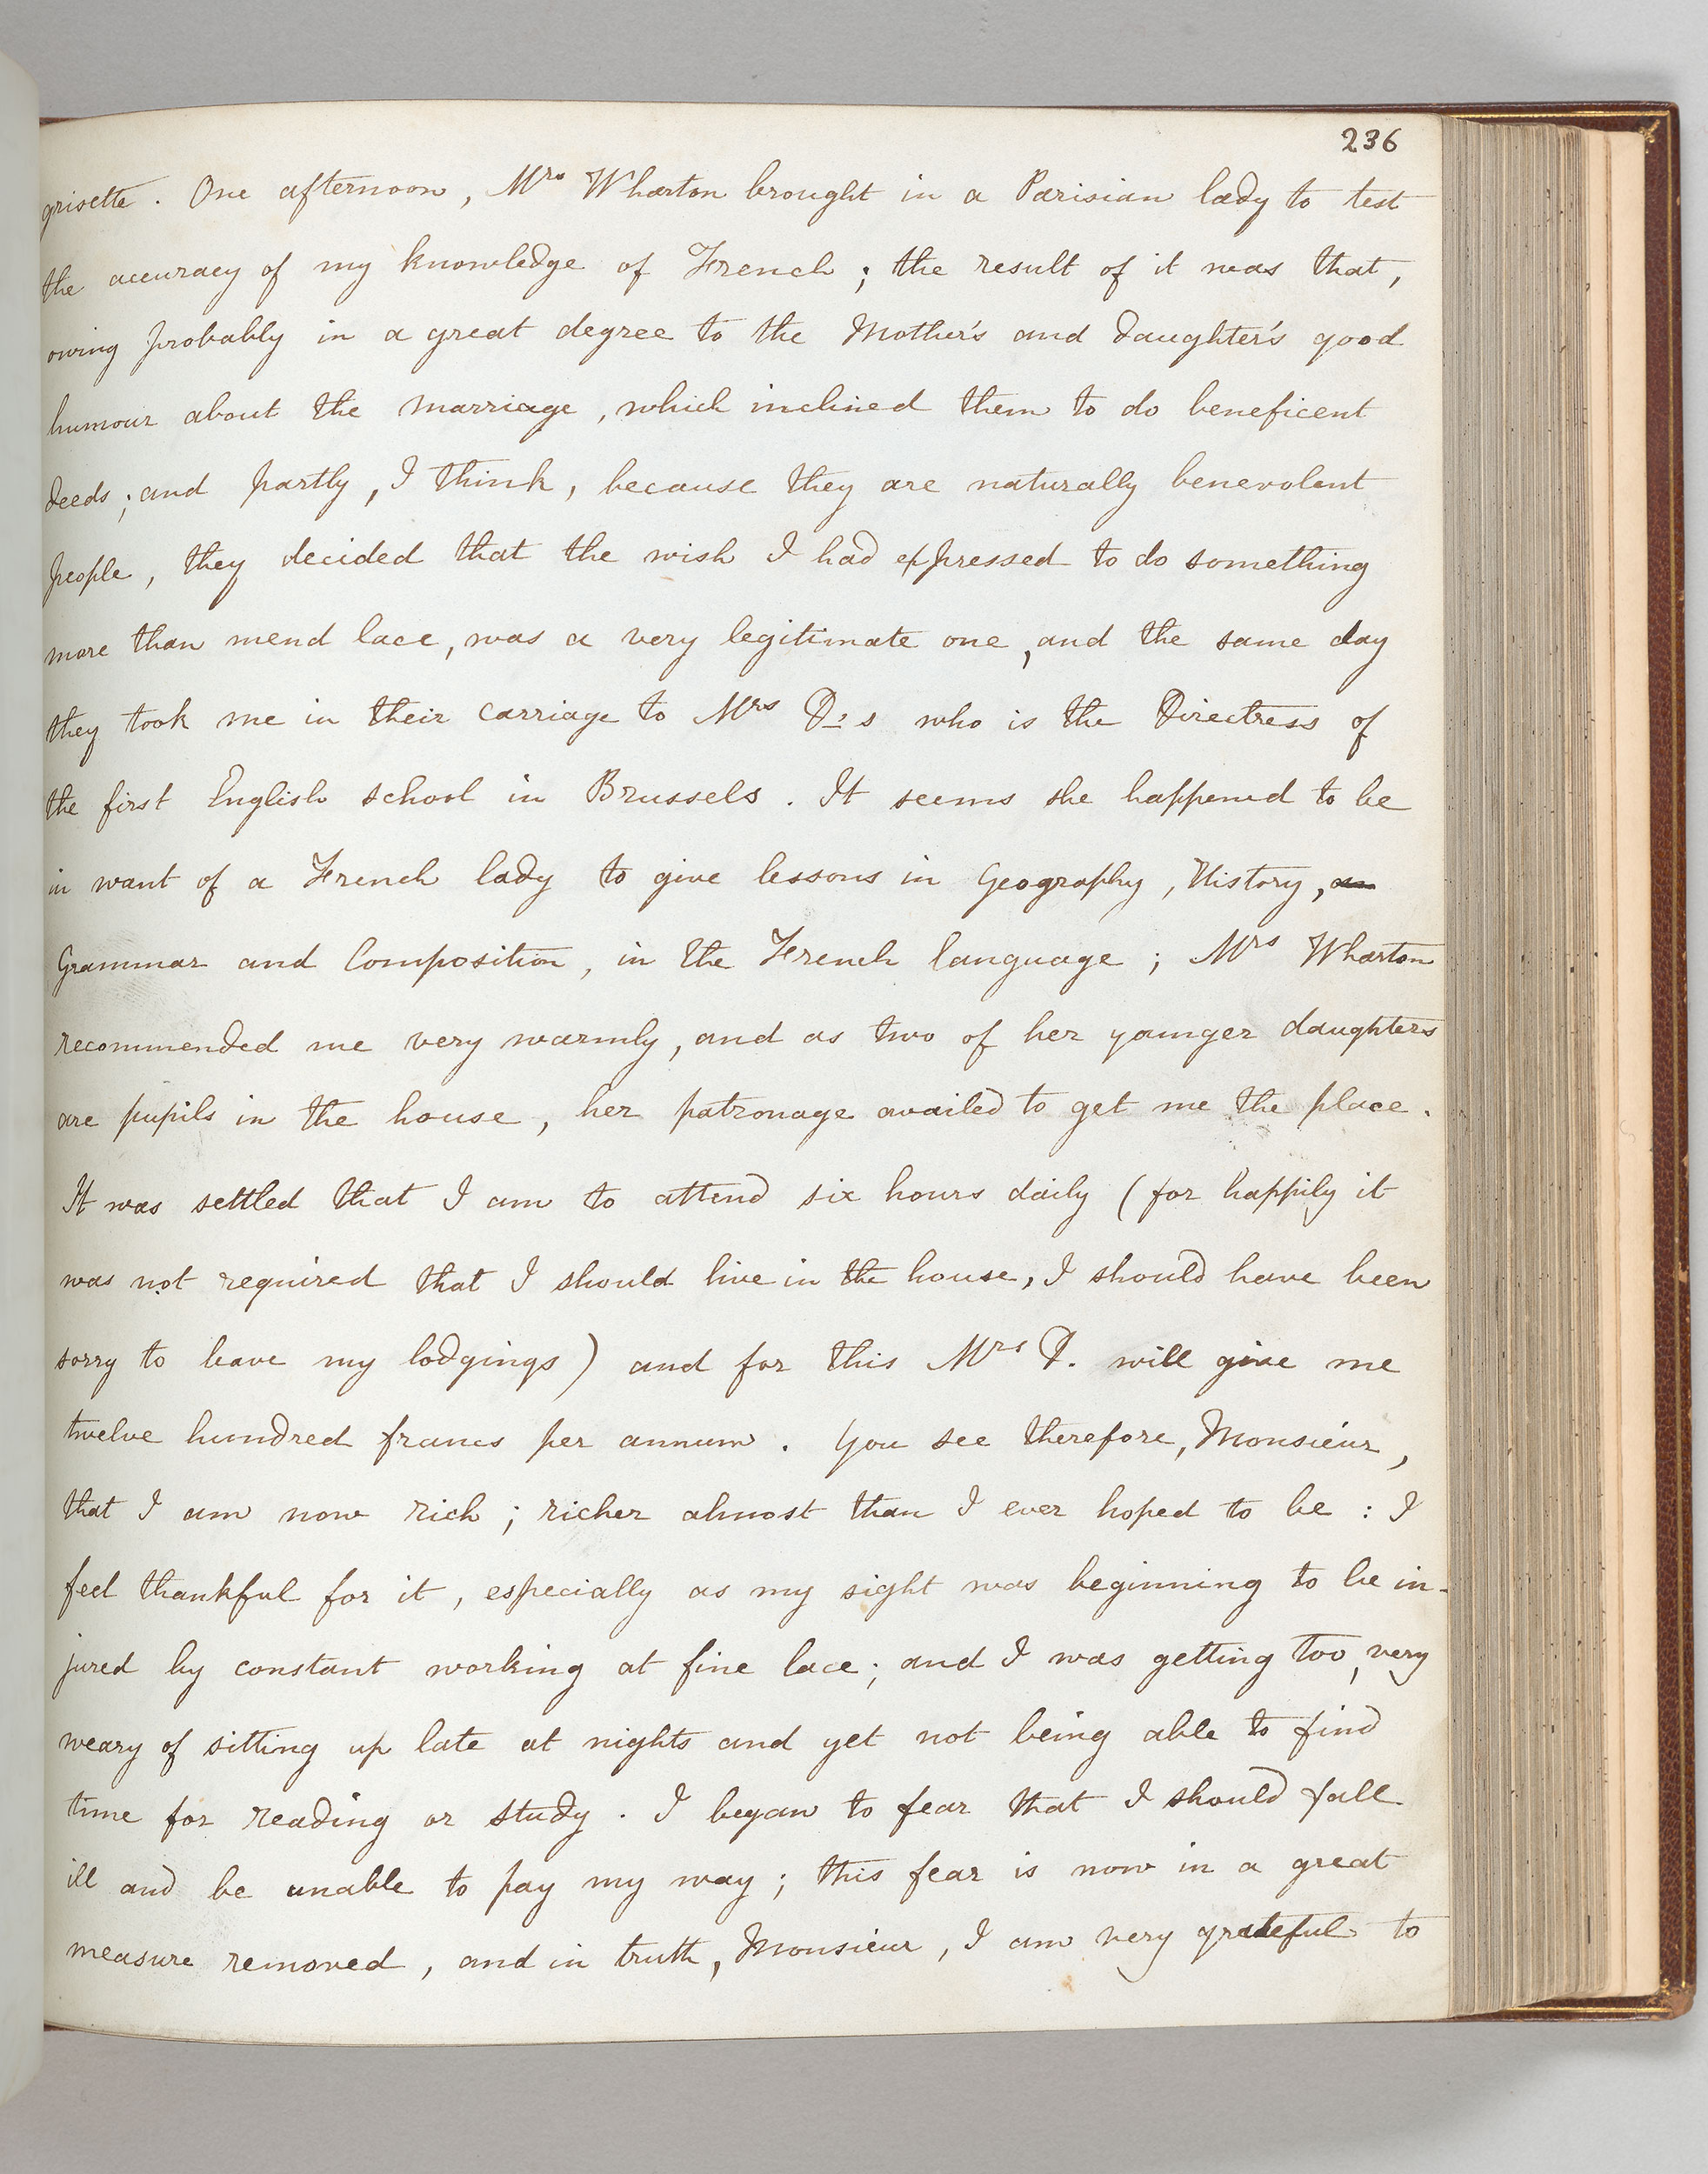 236
grisette. One afternoon, Mrs Wharton brought in a Parisian lady to test
the accuracy of my knowledge of French; the result of it was that,
owing probably in a great degree to the Mother's and daughter's good
humour about the marriage, which inclined them to do beneficent
deeds; and partly, I think, because they are naturally benevolent
people, they decided that the wish I had expressed to do something
more than mend lace, was a very legitimate one, and the same day
they took me in their carriage to Mrs D:s who is the Directress of
the first English school in Brussels. It seems she happened to be
in want of a French lady to give lessons in Geography, History,
Grammar and Composition, in the French language; Mrs Wharton
recommended me very warmly, and as two of her younger daughters
are pupils in the house, her patronage availed to get me the place.
It was settled that I am to attend six hours daily (for happily it
was not required that I should live in the house, I should have been
sorry to leave my lodgings) and for this Mrs D. will give me
twelve hundred francs per annum. You see therefore, Monsieur,
that I am now rich; richer almost than I ever hoped to be: I
feel thankful for it, especially as my sight was beginning to be in-
jured by constant working at fine lace; and I was getting too, very
weary of sitting up late at nights and yet not being able to find
time for reading or study. I began to fear that I should fall
ill and be unable to pay my way; this fear is now in a great
measure removed, and in truth, Monsieur, I am very grateful to